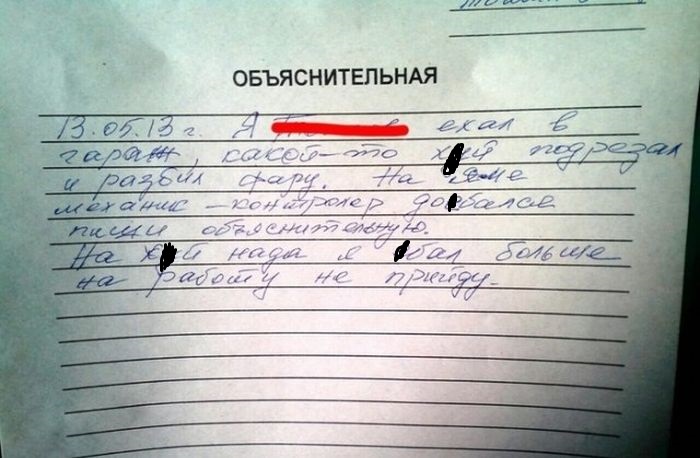 ОБЪЯСНИТЕЛЬНАЯ
13.05.13г. Я ехал в
гараж, какой-то х й подрезал
и разбил фару. На
механик-контролер до бался
пиши объяснительную.
На х й нада я бал больше
на работу не прийду.